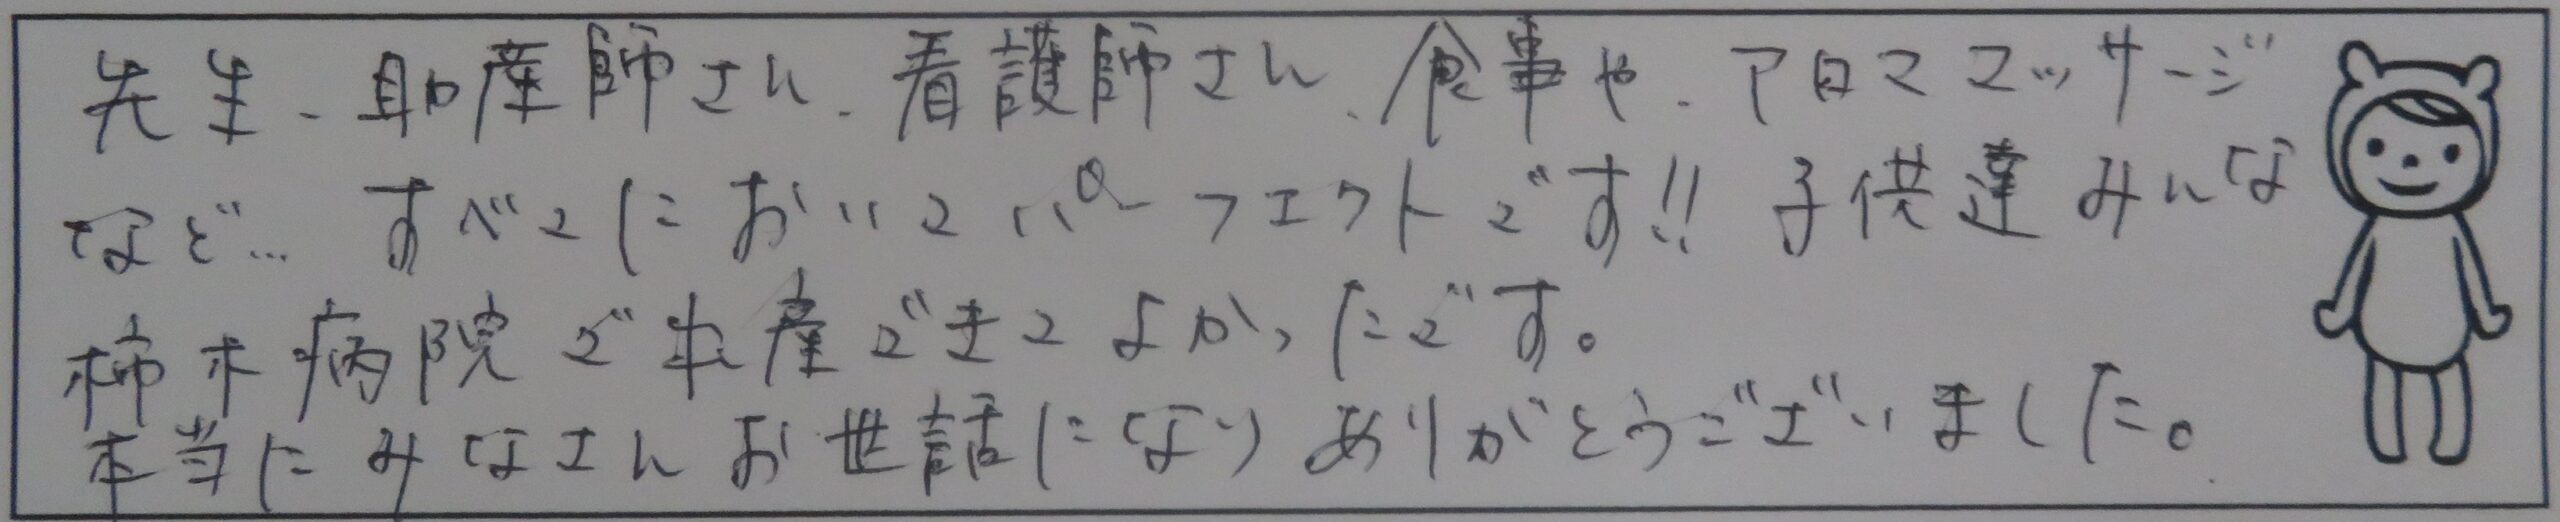 先生、助産師さん、看護師さん、食事や、アロママッサージ
など… すべてにおいてパーフェクトです!! 子供達みんな
柿木病院で出産できてよかったです。
本当にみなさんお世話になりありがとうございました。